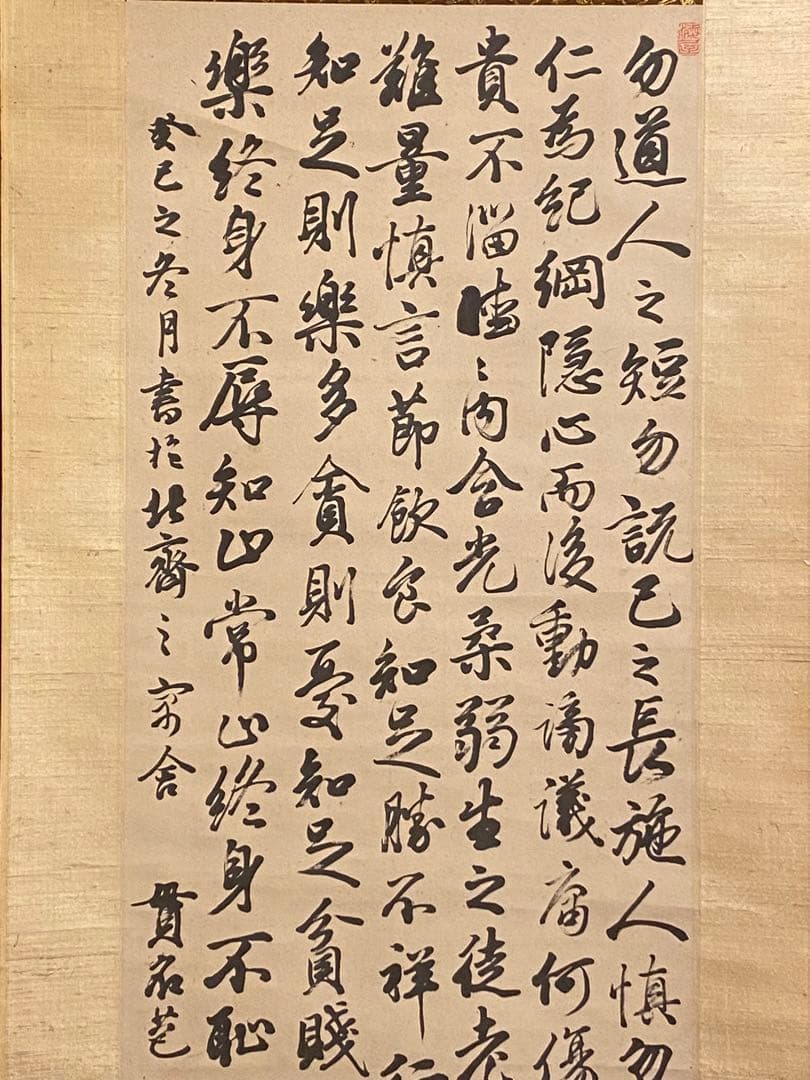 勿道人之短勿説己之長施人慎勿
仁為紀綱隠心而後動謗議庸何傷
貴不淄曖〻内含光柔弱生之徒老
難量慎言節飲食知足勝不祥
知足則樂多貪則憂知足貧賤
樂終身不辱知止常止終身不恥
癸巳之冬月書於北齋之寓舍 貫名苞